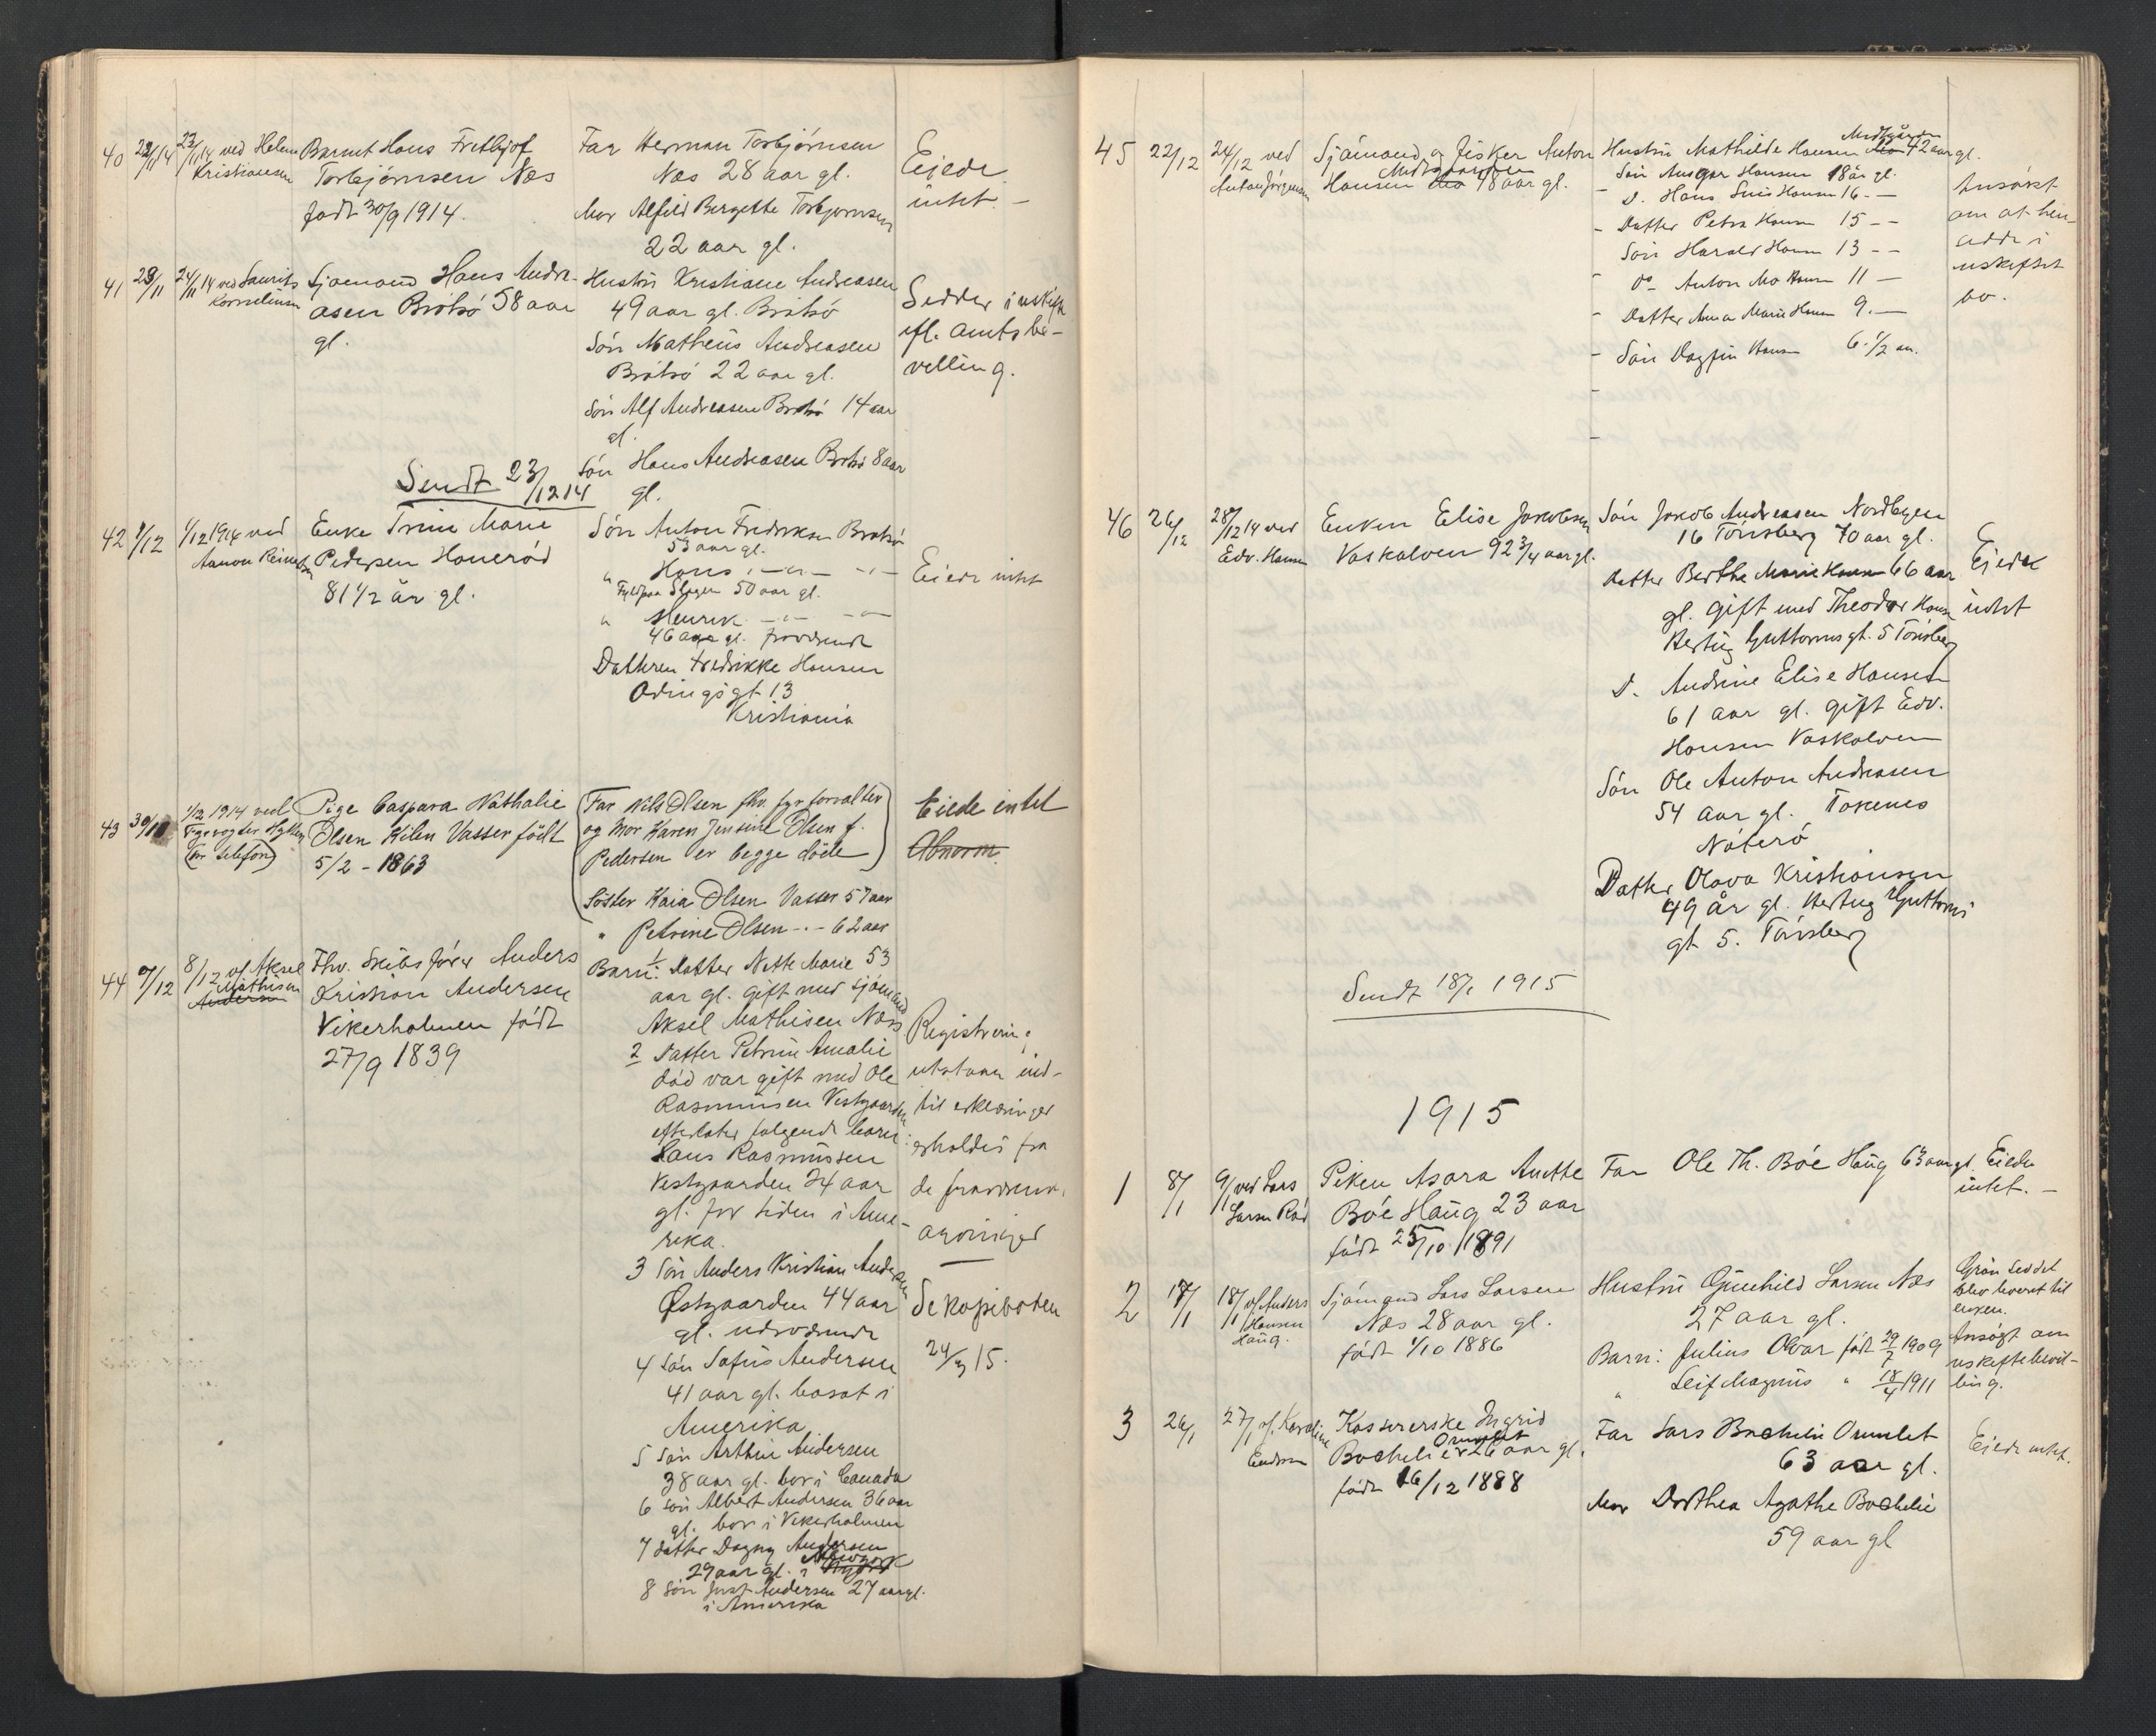 40 22/11 14 23/11 14 ved Helene Kristiansen
Barnet Hans Frethjof
Torbjørnsen Næs
født 30/9 1914.
Far Herman Torbjørnsen
Næs 28 aar gl.
Mor Alfild Bergette Torbjørnsen
22 aar gl.
Eiede
intet. –
41 23/11 24/11 14 ved Laurits Kornelinsen
Sjømand Hans Andre-
asen Brøtsø 58 aar
gl.
Hustru Kristiane Andreasen
49 aar gl. Brøtsø
Søn Matheus Andreasen
Brøtsø 22 aar gl.
Søn Alf Andreasen Brøtsø 14 aar
gl.
Søn Hans Andreasen Brøtsø 8 aar
gl.
Sidder i uskifte
ifl. amtsbe-
villing.
Sendt 23/12 14
42 1/12 1/12 1914 ved
Enke Trine Marie
Pedersen Honerød
81 1/2 år gl.
Søn Anton Fredriksen Brøtsø
53 aar gl.
" Hans –"– –"–
Slagen 50 aar gl.
" Henrik –"– –"–
46 aar gl. fraværende
Datteren Fredrikke Hansen
Odinsgt 13
Kristiania
Eiede intet
43 30/11 1/12 1914 ved
Fyrvogter
(pr telefon)
Pige Caspara Nathalie
Olsen Kilen Vasser født
5/2 – 1863
(Far Nils Olsen fhv. fyrforvalter
og Mor Karen Jensine Olsen f.
Pedersen er begge døde)
Søster Kaia Olsen Vasser 57 aar
" Petrine Olsen –"– 62 aar
Eiede intet
Abnorm.
44 7/12 8/12 v/ Aksel
Mathisen
Andersen
Fhv. Skibsfører Anders
Kristian Andersen
Vikerholmen født
27/9 1839
Barn: 1/ Datter Nette Marie 53
aar gl. gift med sjømand
Aksel Mathisen Næs
2 Datter Petrine Amalie
død var gift med Ole
Rasmussen Vestgaarden
efterlater følgende barn:
Hans Rasmussen
Vestgaarden 24 aar
gl. for tiden i Ame-
rika.
3 Søn Anders Kristian Andersen
Østgaarden 44 aar
gl. udværende
4 Søn Sofus Andersen
41 aar gl. bosat i
Amerika
5 Søn Arthur Andersen
38 aar gl. bor i Canada
6 søn Albert Andersen 36 aar
gl. bor i Vikerholmen
7 datter Dagny Andersen
29 aar gl. i Newyork
8 Søn Just Andersen 27 aar gl.
i Amerika
Registrering
utstaar ind-
til erklæringer
erholdes fra
de fraværende
arvinger
Se kopiboken
24/3 15.
45 22/12 24/12 ved
Anton Jørgensen
Sjømand og Fisker Anton
Hansen Midtgaarden 48 aar gl.
Hustru Mathilde Hansen Midtgaarden 42 aar gl.
Søn Ansgar Hansen 18 år gl.
– D. Hans Hansen 16 – –
– Datter Petra Hansen 15 – –
Søn Harald Hansen 13 – –
– Do Anton Hansen 11 –
– Datter Anna Marie Hansen 9. –
– Søn Dagfin Hansen 6 1/2 aar.
Ansøkt
om at hen-
sidde i
uskiftet
bo.
46 26/12 28/12 14 ved
Edv. Hansen
Enken Elise Jakobsen
Vaskalven 92 3/4 aar gl.
Søn Jakob Andreasen Nordbyen
16 Tønsberg 70 aar gl.
Datter Berthe Marie Hansen 66 aar
gl. gift med Theodor Hansen
Hertug Guttormsgt. 5 Tønsberg
D. Andrine Elise Hansen
61 aar gl. gift Edv.
Hansen Vaskalven
Søn Ole Anton Andreasen
54 aar gl. Tokenes
Nøterø
Datter Olava Kristiansen
49 år gl. Hertug Guttorms
gt 5. Tønsberg
Eiede
intet
Sendt 18/1 1915
1915
1 8/1 9/1 ved Lars
Larsen Rød
Piken Asora Anette
Bøe Haug 23 aar
født 25/10 1891
Far Ole Th. Bøe Haug 63 aar gl.
Eiede
intet. –
2 17/1 18/1 v/ Anders
Hansen
Haug.
Sjømand Lars Larsen
Næs 28 aar gl.
født 1/10 1886
Hustru Gunhild Larsen Næs
27 aar gl.
Barn: Julius Olvar født 29/7 1909
" Leif Magnus " 18/4 1911
Grøn seddel
blev leveret til
enken.
Ansøgt om
uskiftebevil-
ling.
3 26/1 27/1 v/ Karoline
Kassererske Ingrid
Bochelie Ormelet 26 aar gl.
født 16/12 1888
Far Lars Bochelie Ormelet
63 aar gl.
Mor Dorthea Agathe Bochelie
59 aar gl
Eiede intet.